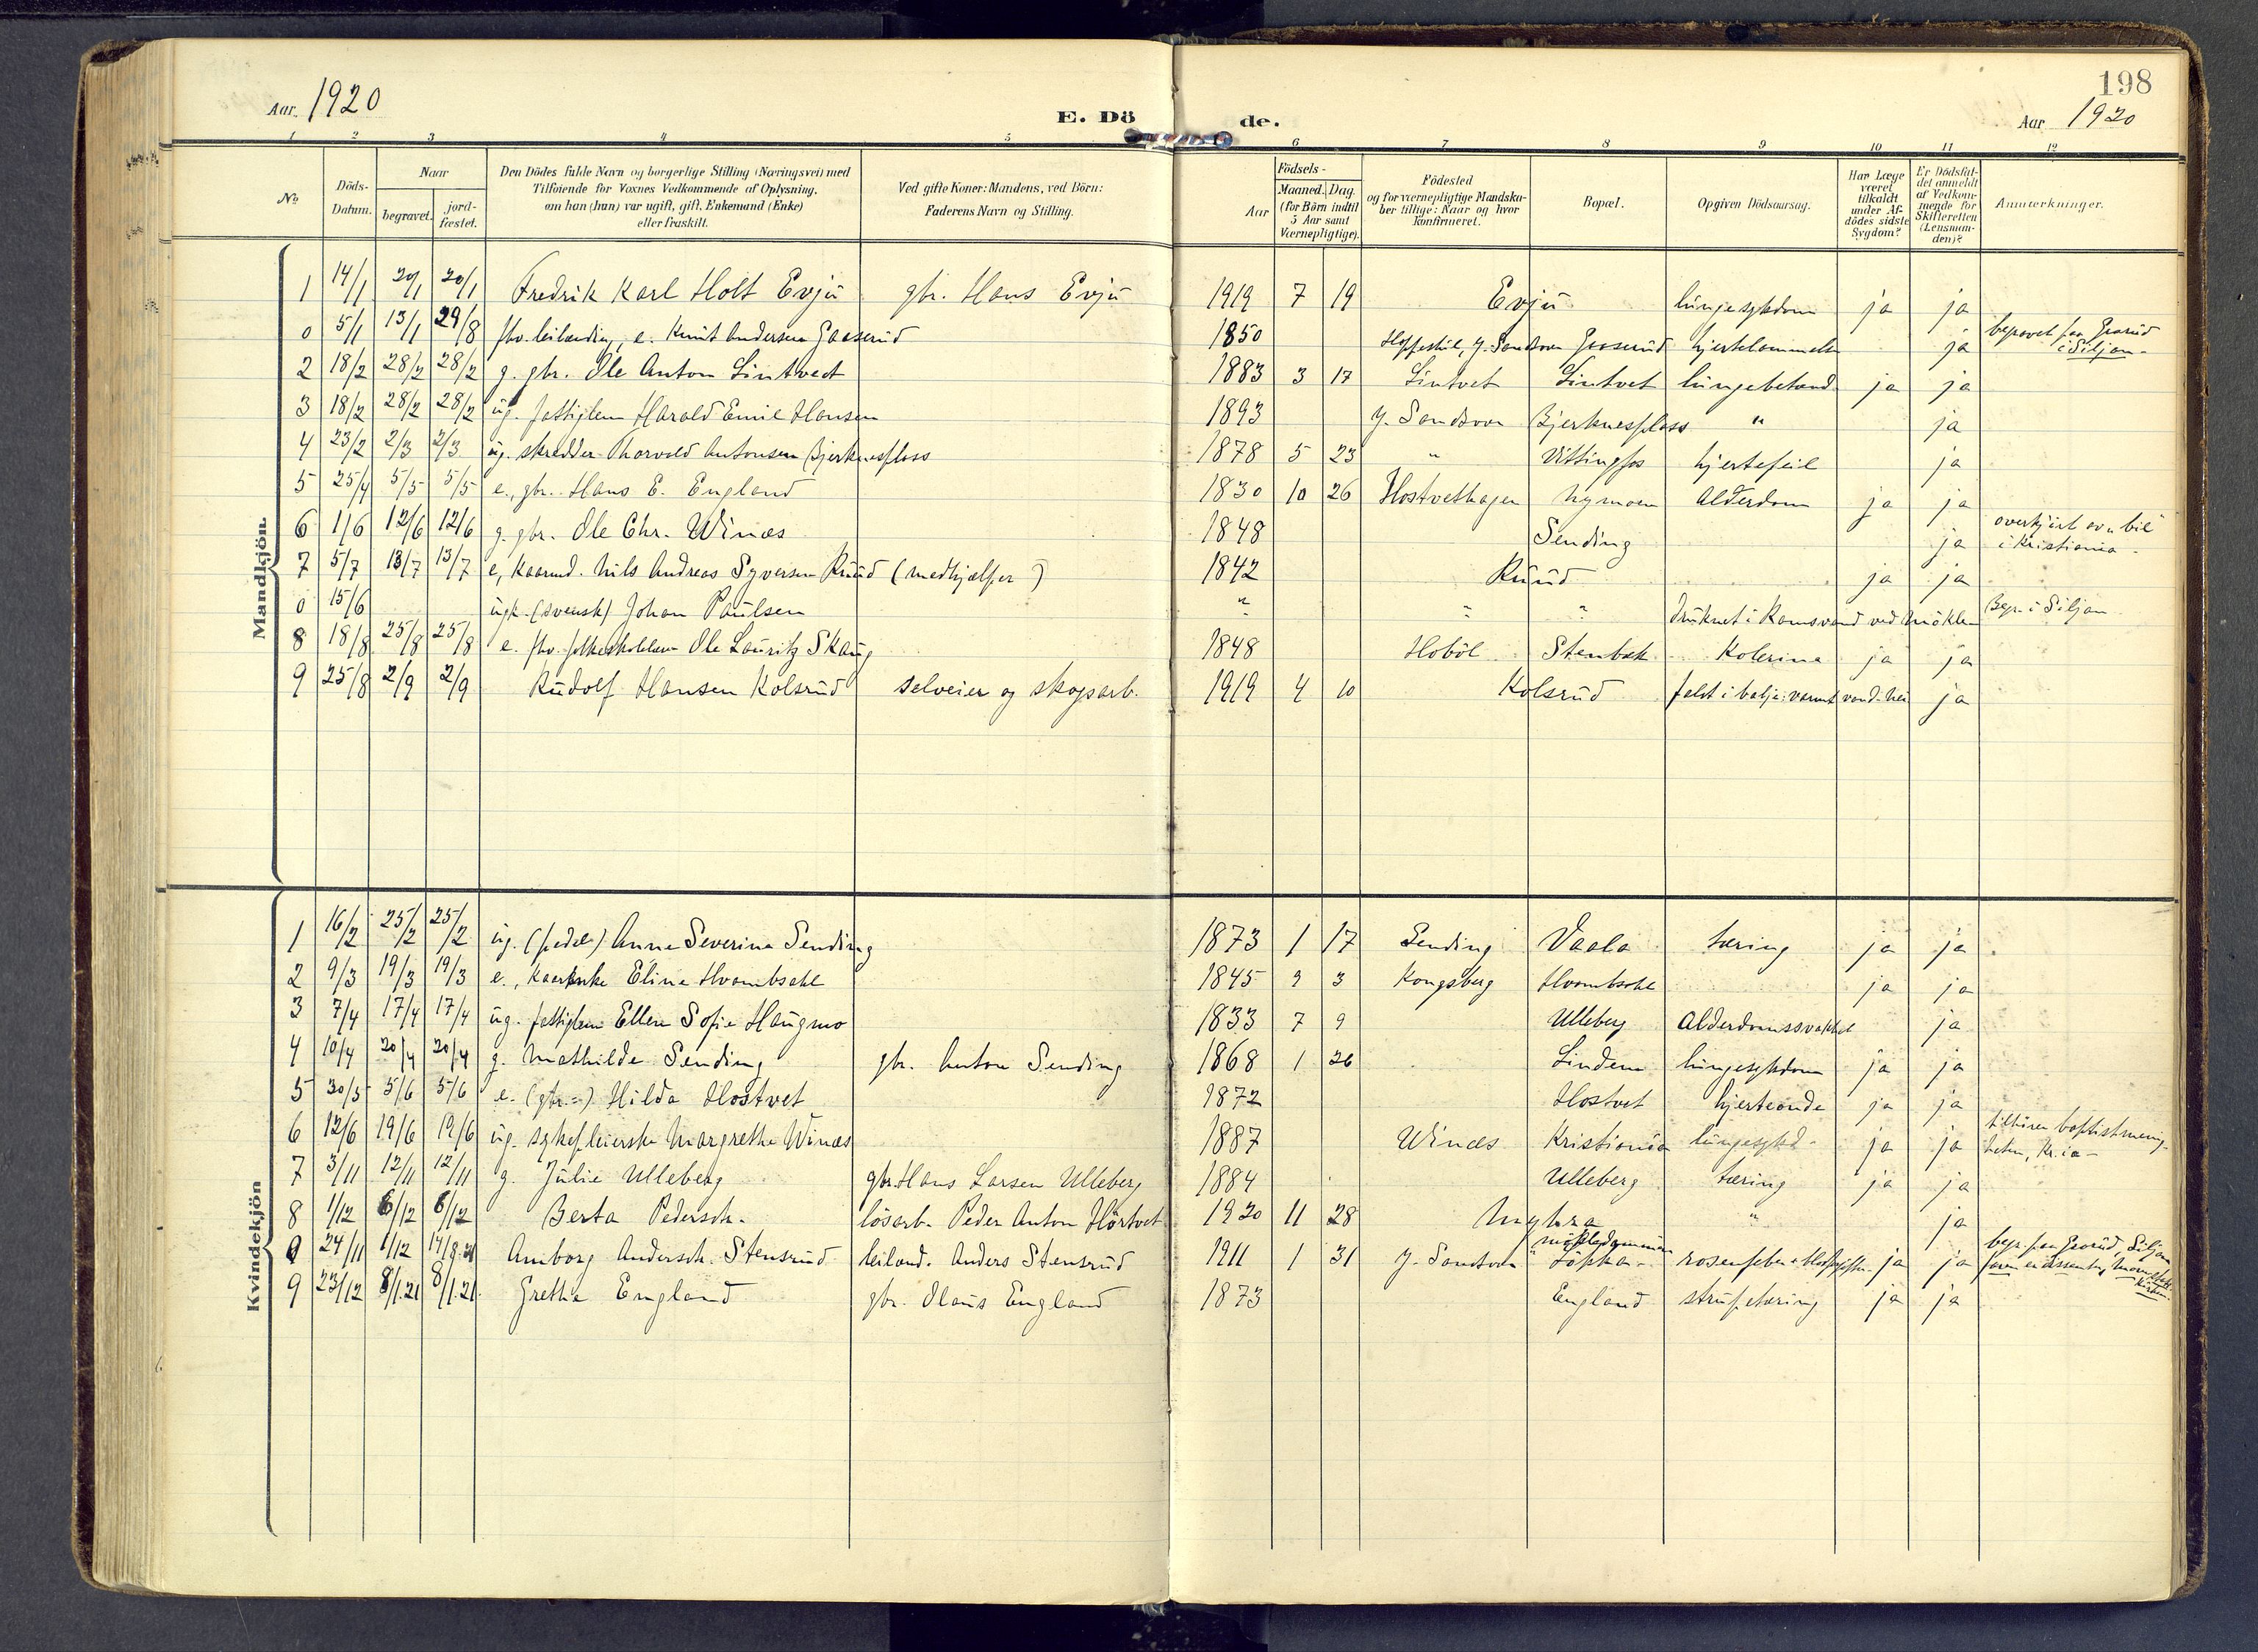 198
Aar 1920
E. Dö de.
Aar 1920
1 2 3 4 5 6 7 8 9 10 11 12
No
Döds-Datum.
Naar
begravet.
jord-fæstet.
Den Dödes fulde Navn og borgerlige Stilling (Næringsvei) med Tilföiende for Voxnes Vedkommende af Oplysning, om han (hun) var ugift, gift, Enkemand (Enke) eller fraskilt.
Ved gifte Koner: Mandens, ved Börn: Faderens Navn og Stilling.
Födsels-
Aar
Maaned. Dag.
(for Börn indtil 5 Aar samt Værnepligtige).
Födested og for værnepligtige Mandskaber tillige: Naar og hvor konfirmeret.
Bopæl.
Opgiven Dödsaarsag.
Har Læge været tilkaldt under Afdödes sidste Sygdom?
Er Dödsfaldet anmeldt af Vedkommende for Skifteretten (Lensmanden)?
Anmærkninger.
Mandkjön.
1 14/1 20/1 20/1 Fredrik Karl Holt Evju gbr. Hans Evju 1919 7 19 Evju lungesykdom ja ja
0 5/1 13/1 29/8 fhv. leilænding, e. Knut Andersen Gaaserud 1850 Y. Sandsvær Gaaserud ja begravet fra Graarud i Siljan
2 18/2 28/2 28/2 g. gbr. Ole Anton Lintvedt 1883 3 17 Lintvet Lintvet lungebetænd. ja ja
3 18/2 28/2 28/2 ug. fattiglem Harald Emil Hansen 1893 Y. Sandsvær Bjerknesplass " ja
4 23/2 2/3 2/3 ug. skredder Thorvald Antonsen Bjerknesplass 1878 5 23 " Vittingfos hjertefeil ja
5 25/4 5/5 5/5 e., gbr. Hans E. England 1830 10 26 Hostvethagen Nymoen Alderdom ja ja
6 1/6 12/6 12/6 g. gbr. Ole Chr. Winæs 1848 Sending ja overkjørt av "bil" i Kristiania
7 5/7 13/7 13/7 e, kaarmd. Nils Andreas Syversen Ruud (medhjælper) 1842 Ruud ja ja
0 15/6 ugk. (svensk) Johan Paulsen " " " druknet i Ramsvand ved Begr. i Siljan
8 18/8 25/8 25/8 e. fhv. folkeskolelærer Ole Lauritz Skaug 1848 Hoböl Stenbæk Kolerina ja ja
9 25/8 2/9 2/9 Rudolf Hansen Kolsrud selveier og skogsarb. 1919 4 10 Kolsrud faldt i balje: varmt vand. nei ja
Kvindekjön
1 16/2 25/2 25/2 ug. Anne Severine Sending 1873 1 17 Sending Vaala tæring ja ja
2 9/3 19/3 19/3 e., kaarenke Eline Hvambsahl 1845 9 3 Kongsberg Hvambsahl ja ja
3 7/4 17/4 17/4 ug. fattiglem Ellen Sofie Haugmo 1833 7 9 Ulleberg Alderdomssvakhet ja
4 10/4 20/4 20/4 g. Mathilde Sending gbr. Anton Sending 1868 1 26 Lindem lungesykdom ja ja
5 30/5 5/6 5/6 e. (gbr.-) Hilda Hostvet 1872 Hostvet hjerteonde ja ja
6 12/6 19/6 19/6 ug. sykepleierske Margrethe Winæs 1887 Winæs Kristiania lungesykd. ja ja tilhører baptistmenigheten, Kr.ia
7 3/11 12/11 12/11 g. Julie Ulleberg gbr. Hans Larsen Ulleberg 1884 Ulleberg tæring ja ja
8 1/12 6/12 6/12 Berta Pedersdr. lösarb. Peder Anton Hörtvet 1920 11 28 Myhra " ja
0 24/11 1/12 14/8.21 Amborg Andersdr. Stensrud leilænd. Anders Stensrud 1911 1 31 Y. Sandsvær rosenfeber ja ja begr. fra Graarud, Siljan
9 23/12 8/1.21 8/1.21. Grethe England gbr. Olaus England 1873 England strupetæring ja ja